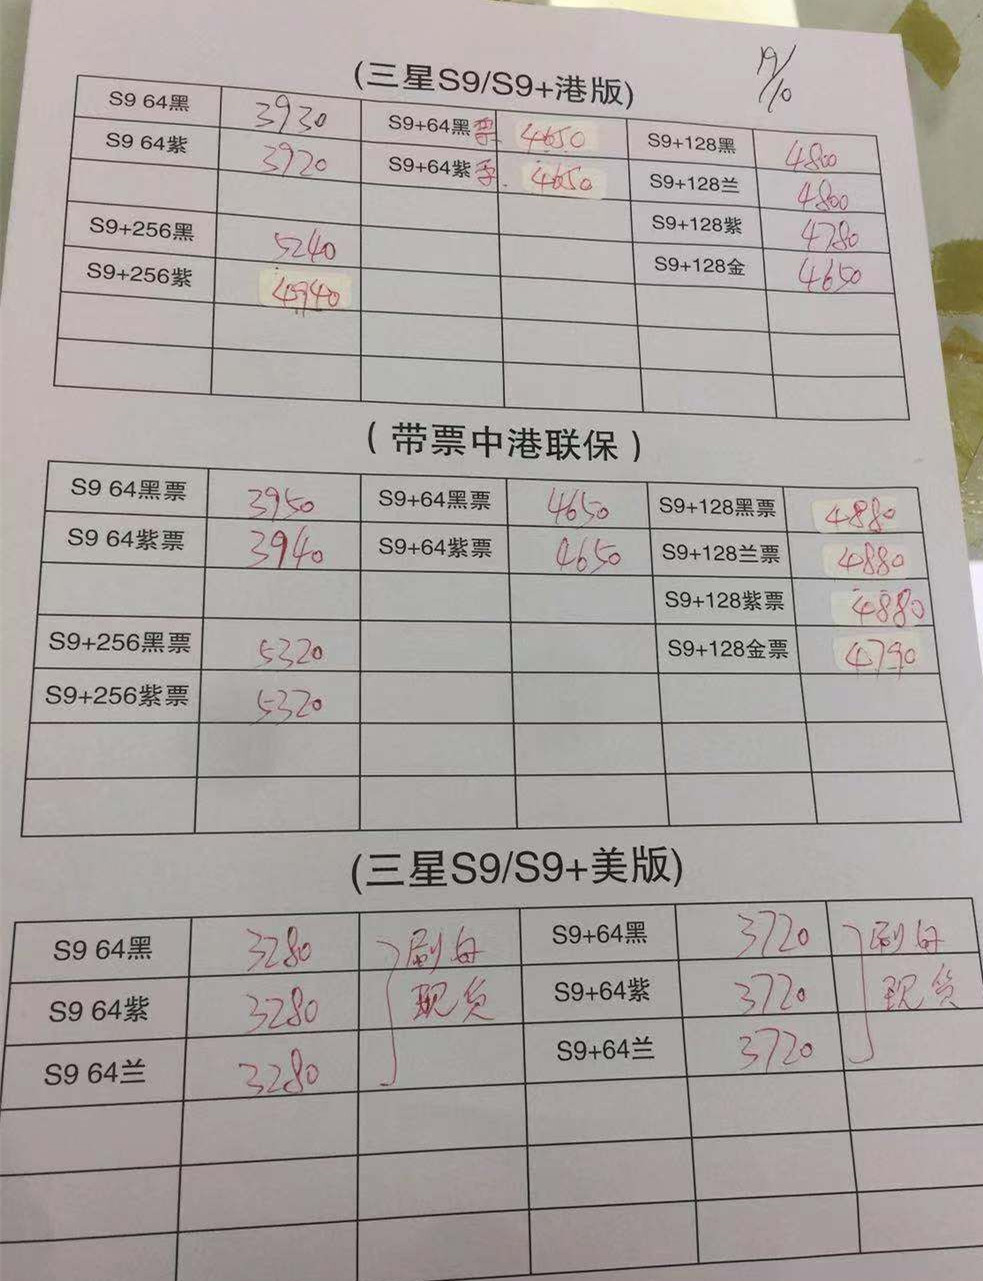 19/10
(三星S9/S9+港版)
S9 64黑 3930 S9+64黑票 4650 S9+128黑 4800
S9 64紫 3920 S9+64紫 4650 S9+128兰 4800
S9+128紫 4780
S9+256黑 5240 S9+128金 4650
S9+256紫 4940
（带票中港联保）
S9 64黑票 3950 S9+64黑票 4650 S9+128黑票 4880
S9 64紫票 3940 S9+64紫票 4650 S9+128兰票 4880
S9+128紫票 4880
S9+256黑票 5320 S9+128金票 4790
S9+256紫票 5320
(三星S9/S9+美版)
S9 64黑 3280 刷好 S9+64黑 3720 刷好
S9 64紫 3280 现货 S9+64紫 3720 现货
S9 64兰 3280 S9+64兰 3720